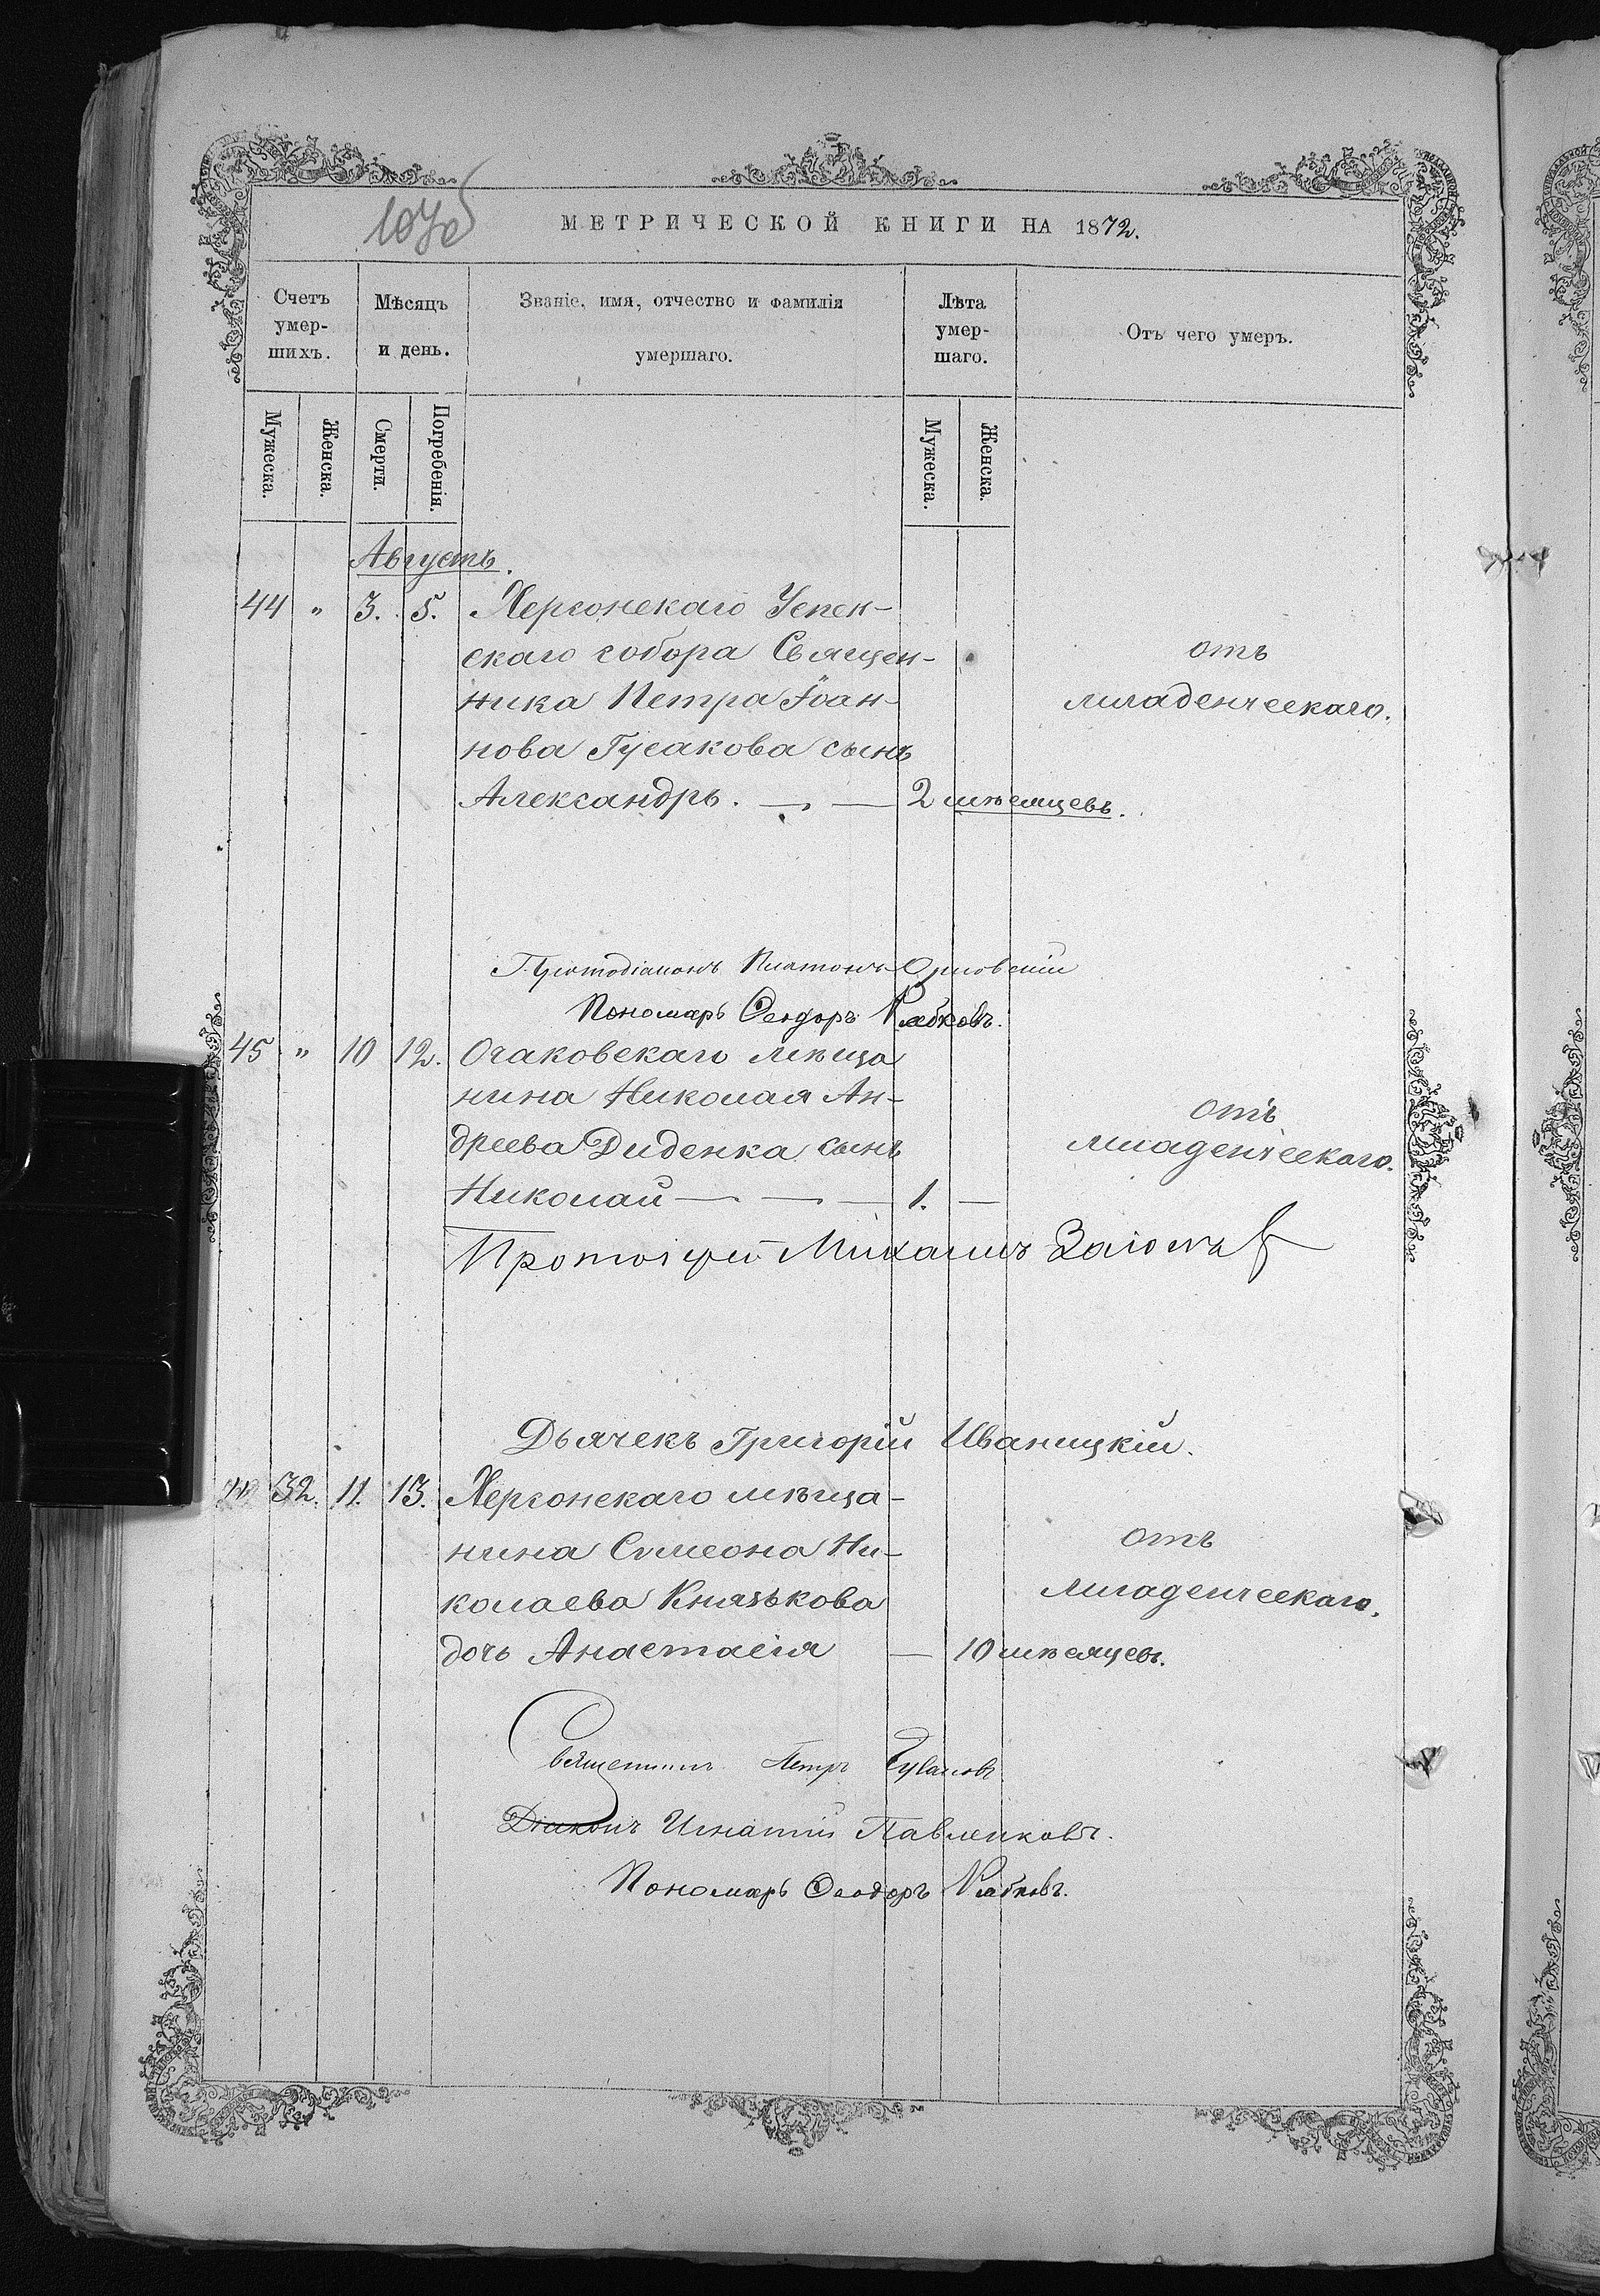 МЕТРИЧЕСКОЙ КНИГИ НА 1872.
Счетъ умер-шихъ.
Мѣсяцъ и день.
Званіе, имя, отчество и фамилія умершаго.
Лѣта умер-шаго.
Отъ чего умеръ.
Мужеска.
Женска.
Смерти.
Погребенія.
Мужеска.
Женска.
Августъ.
44 " 3. 5. Херсонскаго Успен-
скаго собора Священ-
ника Петра Іоан-
нова Гусакова сынъ
Александръ. — — 2 мѣсяцевъ.
отъ
младенческаго.
Протодіаконъ Платонъ
Пономарь Ѳеодоръ
45 " 10 12. Очаковскаго мѣща
нина Николая Ан-
дреева Диденка сынъ
Николай — — — 1. —
отъ
младенческаго.
Протоіерей Михаилъ
Дьячекъ Григорій Иваницкій.
" 32. 11. 13. Херсонскаго мѣща-
нина Симеона Ни-
колаева Князькова
дочь Анастасія — 10 мѣсяцевъ.
отъ
младенческаго.
Священникъ Петръ
Діаконъ Игнатій Павленковъ.
Пономарь Ѳеодоръ